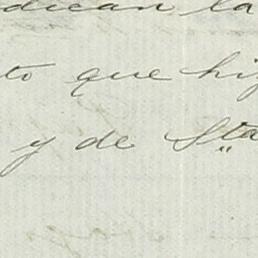 dican la
to que hiz
y de Sta